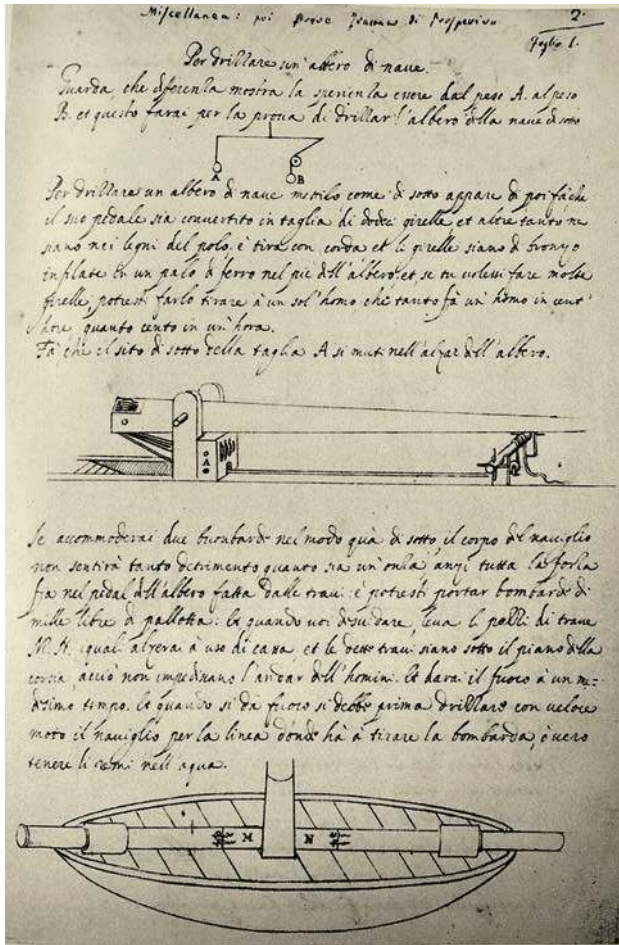 Miscellanea: poi Prove di Prospettiva
2.
Foglio 1.
Per drillare un' albero di nave.
Guarda, che diferenla mostra la sperienla essere dal peso A. al peso
B. et questo farai per la prova di drillar l'albero della nave di sotto
A B
Per drillare un albero di nave mettilo come di sotto appare di poi fà che
il suo pedale sia convertito in taglia di dodici girelle et altre tanto ne
siano nei legni del polo, e tira con corda et le girelle siano di bronzo
infilate in un palo di ferro nel piè dell'albero, et se tu volevi fare molte
girelle, potresti farlo tirare à un sol' homo che tanto fà un' homo in cent'
hore quanto cento in un'hora.
Fà, che il sito di sotto della taglia A si muti nell'alzar dell'albero.
A B
Se accommoderai due buonbarde nel modo quà di sotto, il corpo del naviglio
non sentirà tanto detrimento quanto sia un'onla, anzi tutta la forla
fia nel pedal dell'albero fatta dalle travi: e potresti portar bombarde di
mille libre di pallotta: Et quando voi leva li pezzi di trave
M. N. iquali alzerai à uso di cassa, et le dette travi siano sotto il piano della
corsia, acciò non impediscano l'andar dell'homini. Et darai il fuoco à un me=
desimo tempo. Et quando si dà fuoco si debbe prima drillare con veloce
moto il naviglio per la linea donde hà à tirare la bombarda, ò vero
tenere li remi nell'aqua.
M N